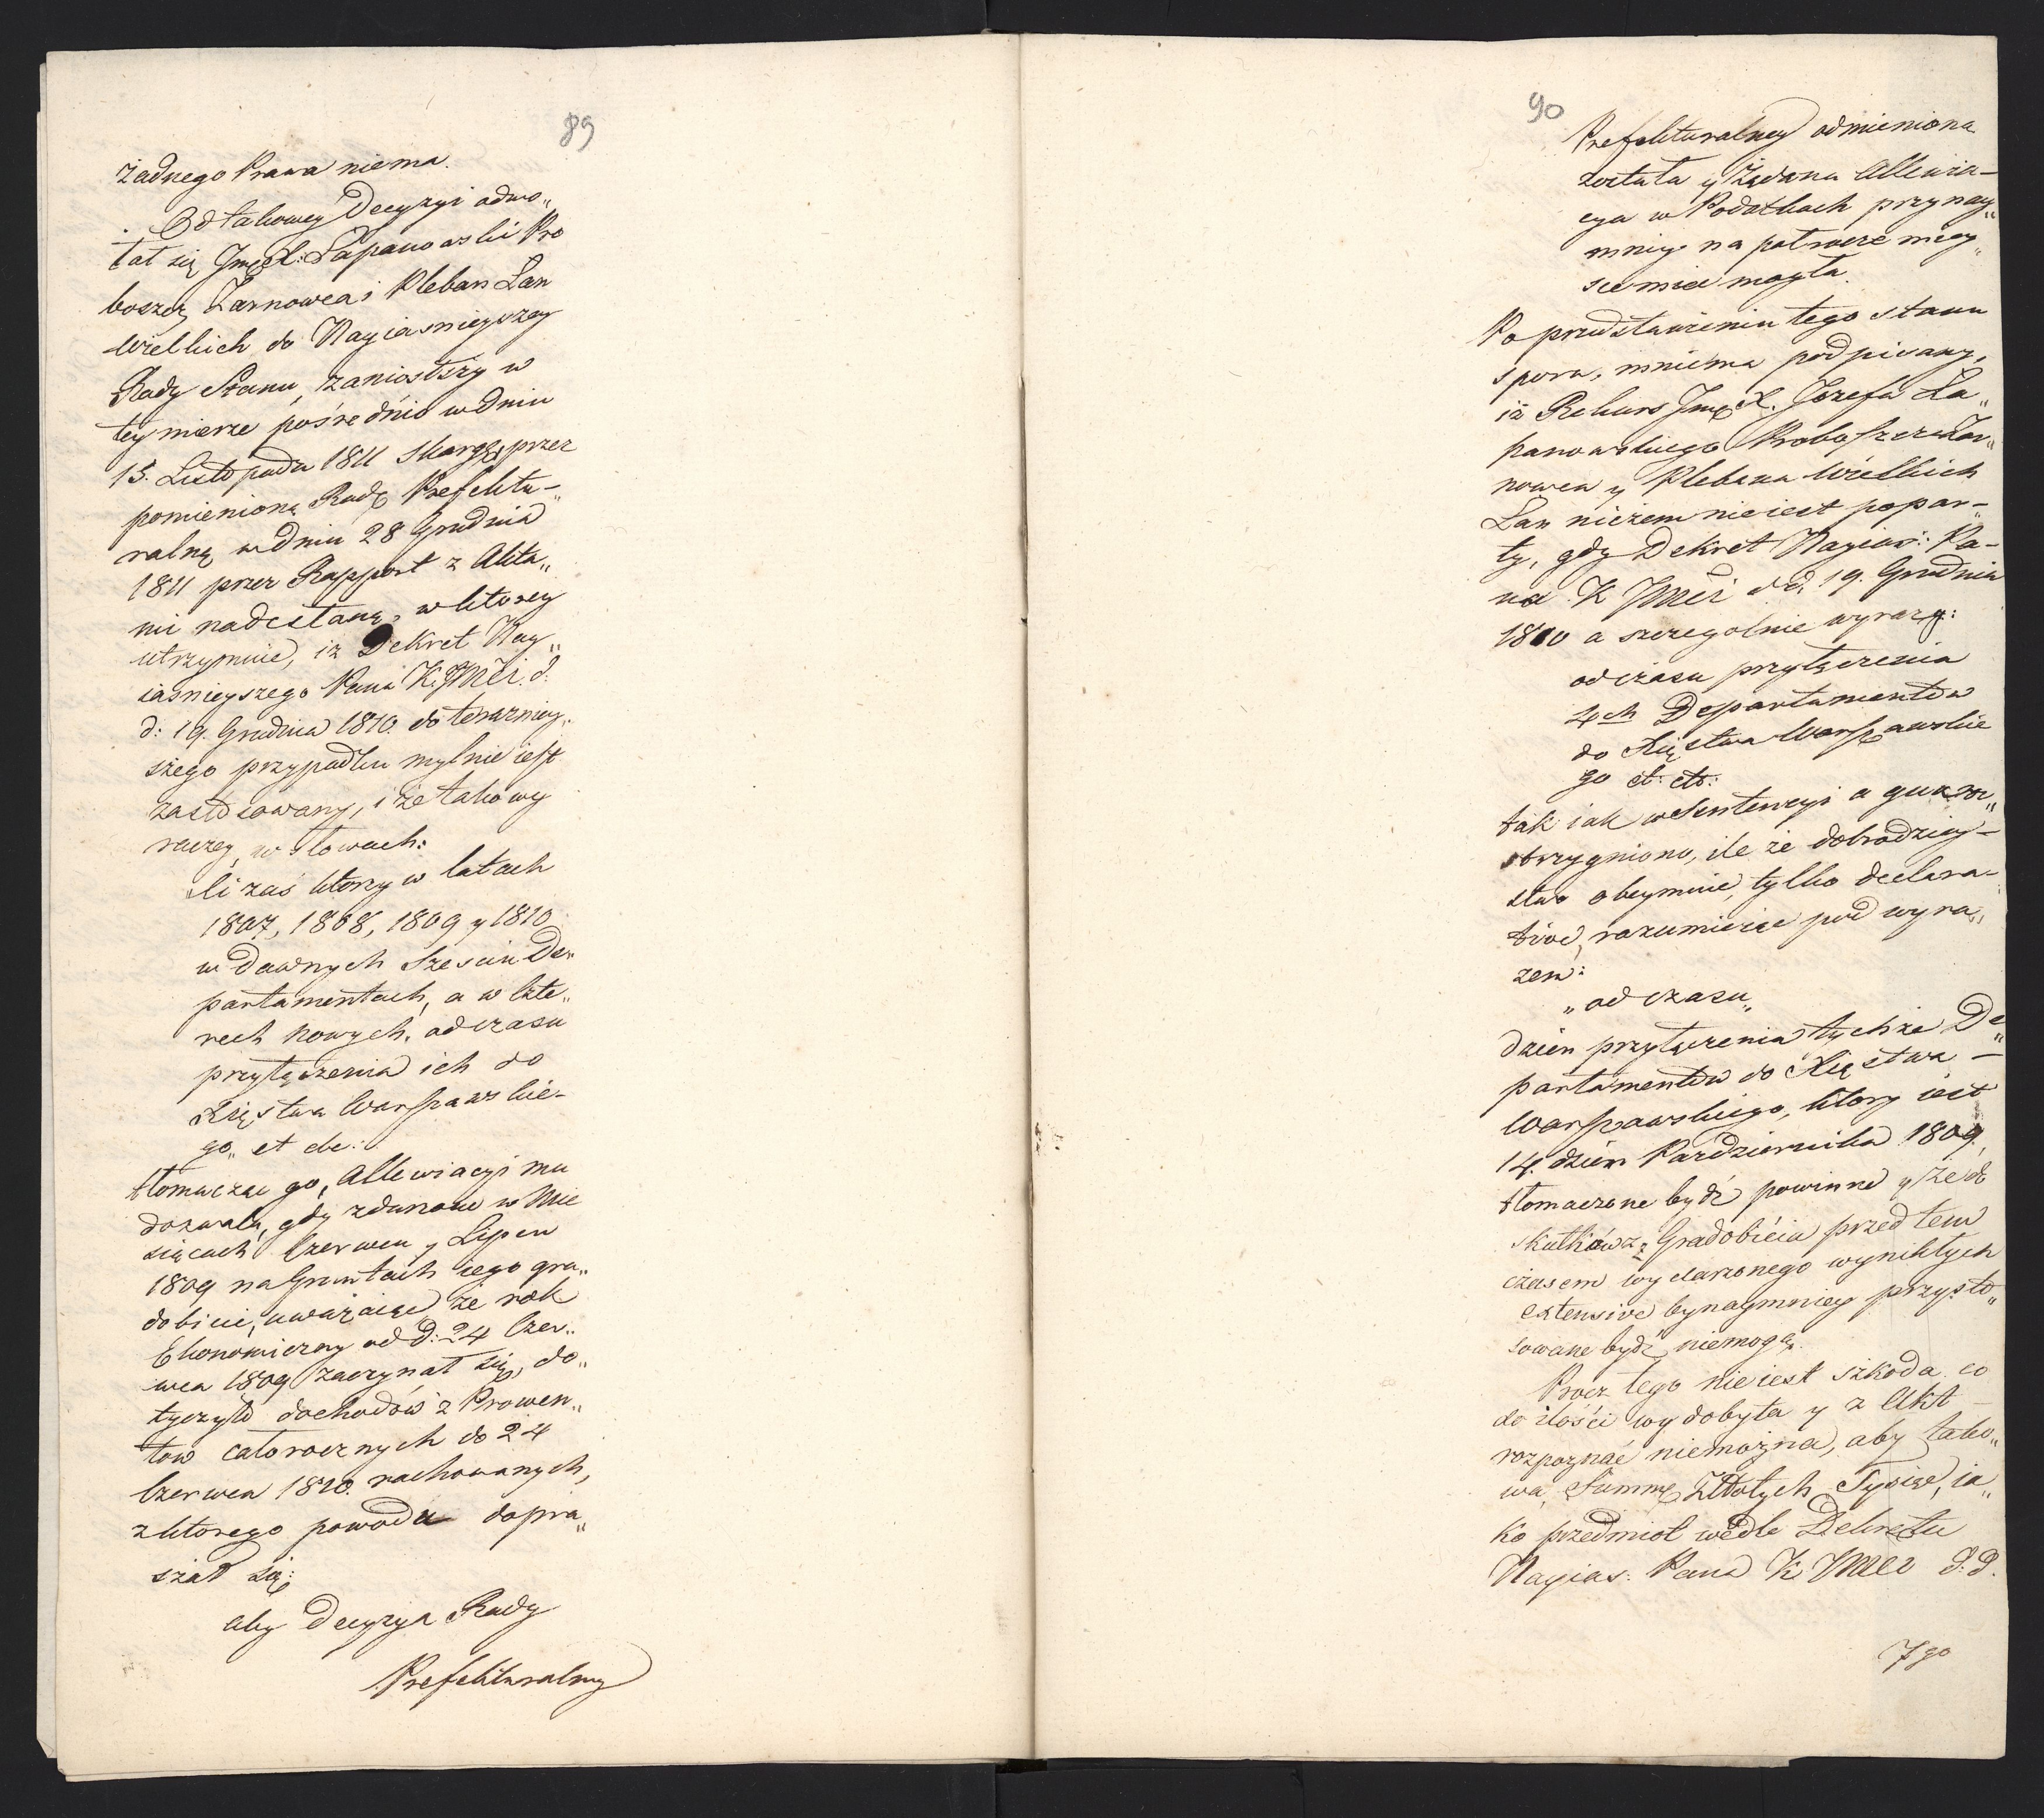 89
żadnego Prawa niema.
Od takowey Decyzyi odwo„
łał się Jmć X: Łapanowski Pro
boszcz Żarnowca i Pleban Łan
Wielkich do Nayiasnieyszey
Rady Stanu, zaniosłszy w
tey mierze pośrednio w dniu
15. Listopada 1811 Skargę, przez
pomienioną Radę Prefektu„
ralną w dniu 28 Grudnia
1811 przez Rapport z Akta„
mi nadesłaną, w ktorey
utrzymuie, iż Dekret Nay„
iasnieyszego Pana K. JMći. d.
d: 19. Grudnia 1810. do terazniey„
szego przypadku mylnie iest
zastosowany, i że takowy
raczey, w słowach:
li zaś ktorzy w latach
1807, 1808, 1809 y 1810
w dawnych Sześciu De„
partamentach, a w Czte„
rech nowych, od czasu
przyłączenia ich do
Xięstwa Warszawskie-
go„ et ctc:
tłomacząc go, Allewiacyi mu
dozwala, gdy zdarzone w Mie
siącach Czerwcu y Lipcu
1809 na Gruntach iego gra„
dobicie, uważaiąc że rok
Ekonomiczny od d: 24 Czer„
wca 1809 zaczynał się, do„
tyczyło dochodów z Prowen„
tow całorocznych do 24
Czerwca 1810. rachowanych,
z ktorego powodu dopra„
szał się:
aby Decyzya Rady
Prefekturalney
90
Prefekturalney odmieniona
została y żądana Allewia-
cya w Podatkach przynay„
mniey na potwore miey„
sce mieć mogła.
Po przedstawieniu tego stanu
sporu, mniema podpisany,
iż Rekurs Jmć X. Jozefa Ła„
panowskiego Proboszcza Żar„
nowca y Plebana Wielkich
Łan niczem nie iest popar-
ty, gdy Dekret Nayias: Pa-
na K JMći d d. 19. Grudnia
1810 a szczegolnie wyrazy:
od czasu przyłączenia
4ch Departamentow
do Xięstwa Warszawskie
go et: ctr:
tak iak w Sentencyi a quo roz„
strzygniono, ile że dobrodziey-
stwo obeymuie, tylko declara-
tive, rozumieiąc pod wyra„
zem:
„od czasu„
dzień przyłączenia tychże De„
partamentow do Xięstwa –
Warszawskiego, ktory iest
14. dzień Pazdziernika 1809,
tłomaczone bydź powinne y że do
skutków z Gradobicia przed tem
czasem wydarzonego wynikłych
extensive bynaymniey przysto„
sowane bydź niemogą.
Procz tego nie iest szkoda co
do ilości wydobyta y z Akt –
rozpoznać niemożna, aby tako„
wa Summę Złłotych Tysiąc, ia„
ko przedmiot wedle Dekretu
Nayias: Pana K JMći d: d.
7go